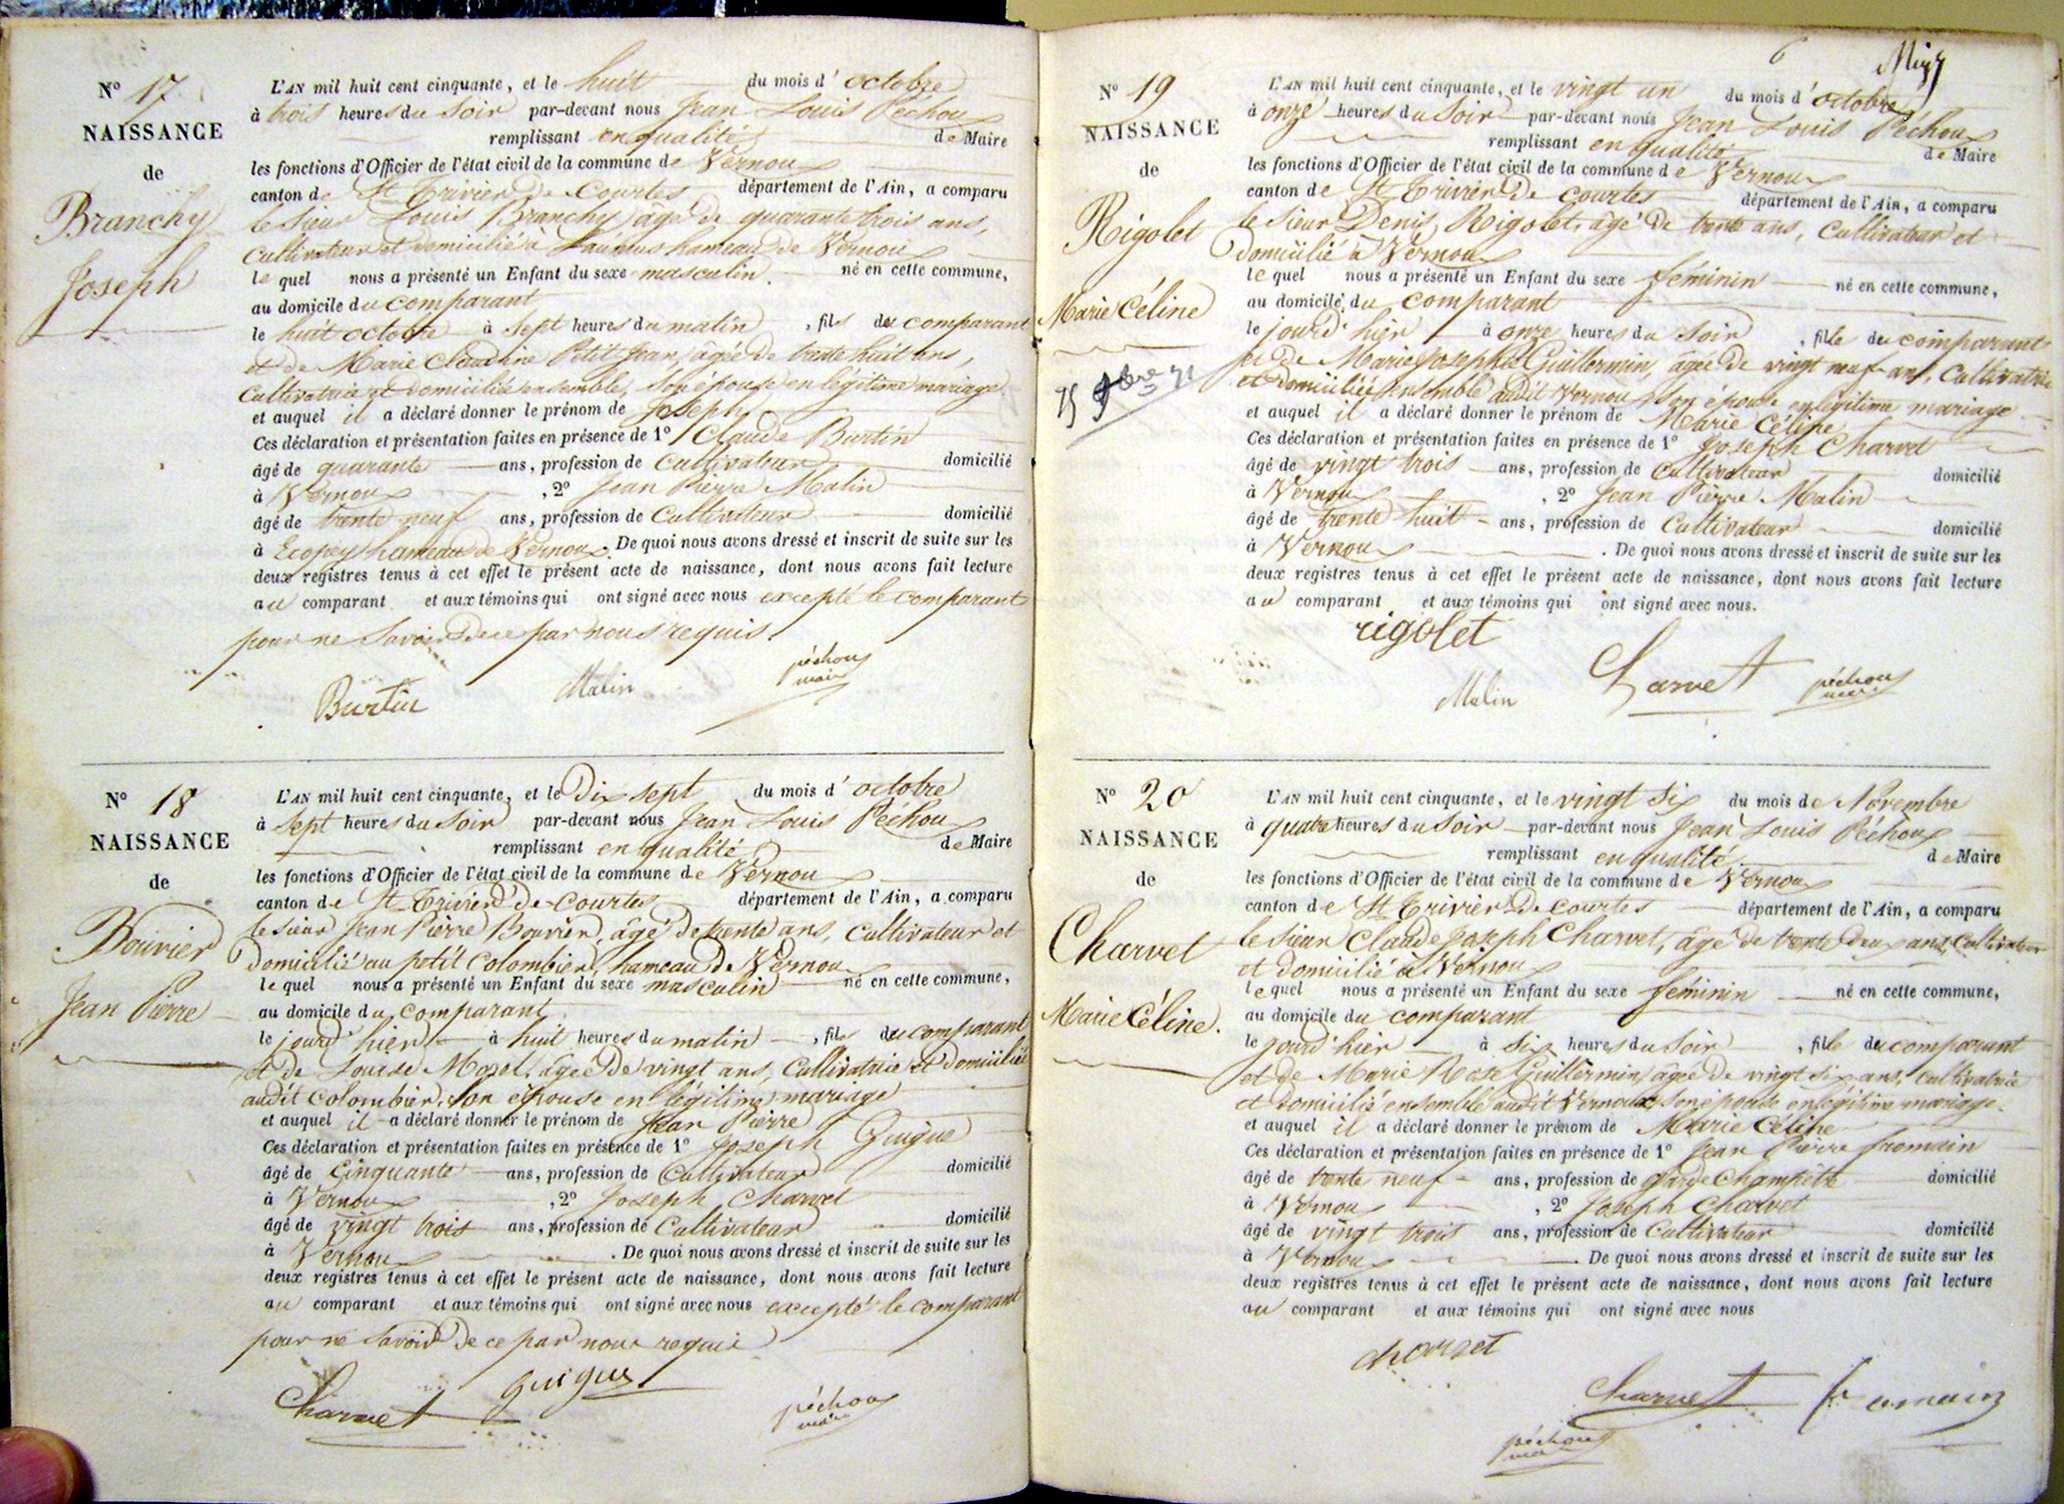 Nº 17
NAISSANCE
de
Branchy
Joseph
L'AN mil huit cent cinquante, et le huit du mois d'octobre
à trois heures du soir par-devant nous Jean Louis Péchoux
remplissant en qualité de Maire
les fonctions d'Officier de l'état civil de la commune de Vernoux
canton de St Trivier de Courtes département de l'Ain, a comparu
le sieur Louis Branchy âgé de quarante trois ans,
cultivateur et domicilié à hameau de Vernoux
le quel nous a présenté un Enfant du sexe masculin né en cette commune,
au domicile du comparant
le huit octobre à sept heures du matin, fils du comparant
et de Marie Claudine Petit Jean, âgée de trente huit ans,
cultivatrice et domiciliés ensemble, son épouse en légitime mariage
et auquel il a déclaré donner le prénom de Joseph
Ces déclaration et présentation faites en présence de 1º Claude Burtin
âgé de quarante ans, profession de cultivateur domicilié
à Vernoux, 2º Jean Pierre Malin
âgé de trente neuf ans, profession de cultivateur domicilié
à Ecopey hameau de Vernoux. De quoi nous avons dressé et inscrit de suite sur les
deux registres tenus à cet effet le présent acte de naissance, dont nous avons fait lecture
au comparant et aux témoins qui ont signé avec nous excepté le comparant
pour ne savoir de ce par nous requis.
Burtin Malin péchoux
maire
Nº 18
NAISSANCE
de
Bouvier
Jean Pierre
L'AN mil huit cent cinquante, et le Dix sept du mois d'octobre
à sept heures du soir par-devant nous Jean Louis Péchoux
remplissant en qualité de Maire
les fonctions d'Officier de l'état civil de la commune de Vernoux
canton de St Trivier de Courtes département de l'Ain, a comparu
le sieur Jean Pierre Bouvier, âgé de trente ans, cultivateur et
domicilié au petit Colombier, hameau de Vernoux
le quel nous a présenté un Enfant du sexe masculin né en cette commune,
au domicile du comparant
le jourd'hier à huit heures du matin, fils du comparant
et de Louise Morel, âgée de vingt ans, cultivatrice et domiciliée
audit Colombier, son épouse en légitime mariage
et auquel il a déclaré donner le prénom de Jean Pierre
Ces déclaration et présentation faites en présence de 1º Joseph Guigue
âgé de cinquante ans, profession de cultivateur domicilié
à Vernoux, 2º Joseph Charvet
âgé de vingt trois ans, profession de cultivateur domicilié
à Vernoux. De quoi nous avons dressé et inscrit de suite sur les
deux registres tenus à cet effet le présent acte de naissance, dont nous avons fait lecture
au comparant et aux témoins qui ont signé avec nous excepté le comparant
pour ne savoir de ce par nous requis
Charvet guigue péchoux
maire
6
Nº 19
NAISSANCE
de
Rigolet
Marie Céline
L'AN mil huit cent cinquante, et le vingt un du mois d'octobre
à onze heures du soir par-devant nous Jean Louis Péchoux
remplissant en qualité de Maire
les fonctions d'Officier de l'état civil de la commune de Vernoux
canton de St Trivier de Courtes département de l'Ain, a comparu
le sieur Denis Rigolet, âgé de trente ans, cultivateur et
domicilié à Vernoux
le quel nous a présenté un Enfant du sexe féminin né en cette commune,
au domicile du comparant
le jourd'hier à onze heures du soir, fille du comparant
et de Marie Josephte Guillermin, âgée de vingt neuf ans, cultivatrice
et domiciliés ensemble audit Vernoux, son épouse en légitime mariage
et auquel il a déclaré donner le prénom de Marie Céline
Ces déclaration et présentation faites en présence de 1º Joseph Charvet
âgé de vingt trois ans, profession de cultivateur domicilié
à Vernoux, 2º Jean Pierre Malin
âgé de trente huit ans, profession de cultivateur domicilié
à Vernoux. De quoi nous avons dressé et inscrit de suite sur les
deux registres tenus à cet effet le présent acte de naissance, dont nous avons fait lecture
au comparant et aux témoins qui ont signé avec nous.
rigolet
Malin Charvet péchoux
maire
Nº 20
NAISSANCE
de
Charvet
Marie Céline.
L'AN mil huit cent cinquante, et le vingt six du mois de Novembre
à quatre heures du soir par-devant nous Jean Louis Péchoux
remplissant en qualité de Maire
les fonctions d'Officier de l'état civil de la commune de Vernoux
canton de St Trivier de Courtes département de l'Ain, a comparu
le sieur Claude Joseph Charvet, âgé de trente deux ans, cultivateur
et domicilié à Vernoux
le quel nous a présenté un Enfant du sexe féminin né en cette commune,
au domicile du comparant
le jourd'hier à six heures du soir, fille du comparant
et de Marie Rose Guillermin, âgée de vingt six ans, cultivatrice
et domicilié ensemble audit Vernoux, son épouse en légitime mariage.
et auquel il a déclaré donner le prénom de Marie Céline
Ces déclaration et présentation faites en présence de 1º Jean Pierre fromain
âgé de trente neuf ans, profession de garde champêtre domicilié
à Vernoux, 2º Joseph Charvet
âgé de vingt trois ans, profession de cultivateur domicilié
à Vernoux. De quoi nous avons dressé et inscrit de suite sur les
deux registres tenus à cet effet le présent acte de naissance, dont nous avons fait lecture
au comparant et aux témoins qui ont signé avec nous
charvet
Charvet fromain
péchoux
maire